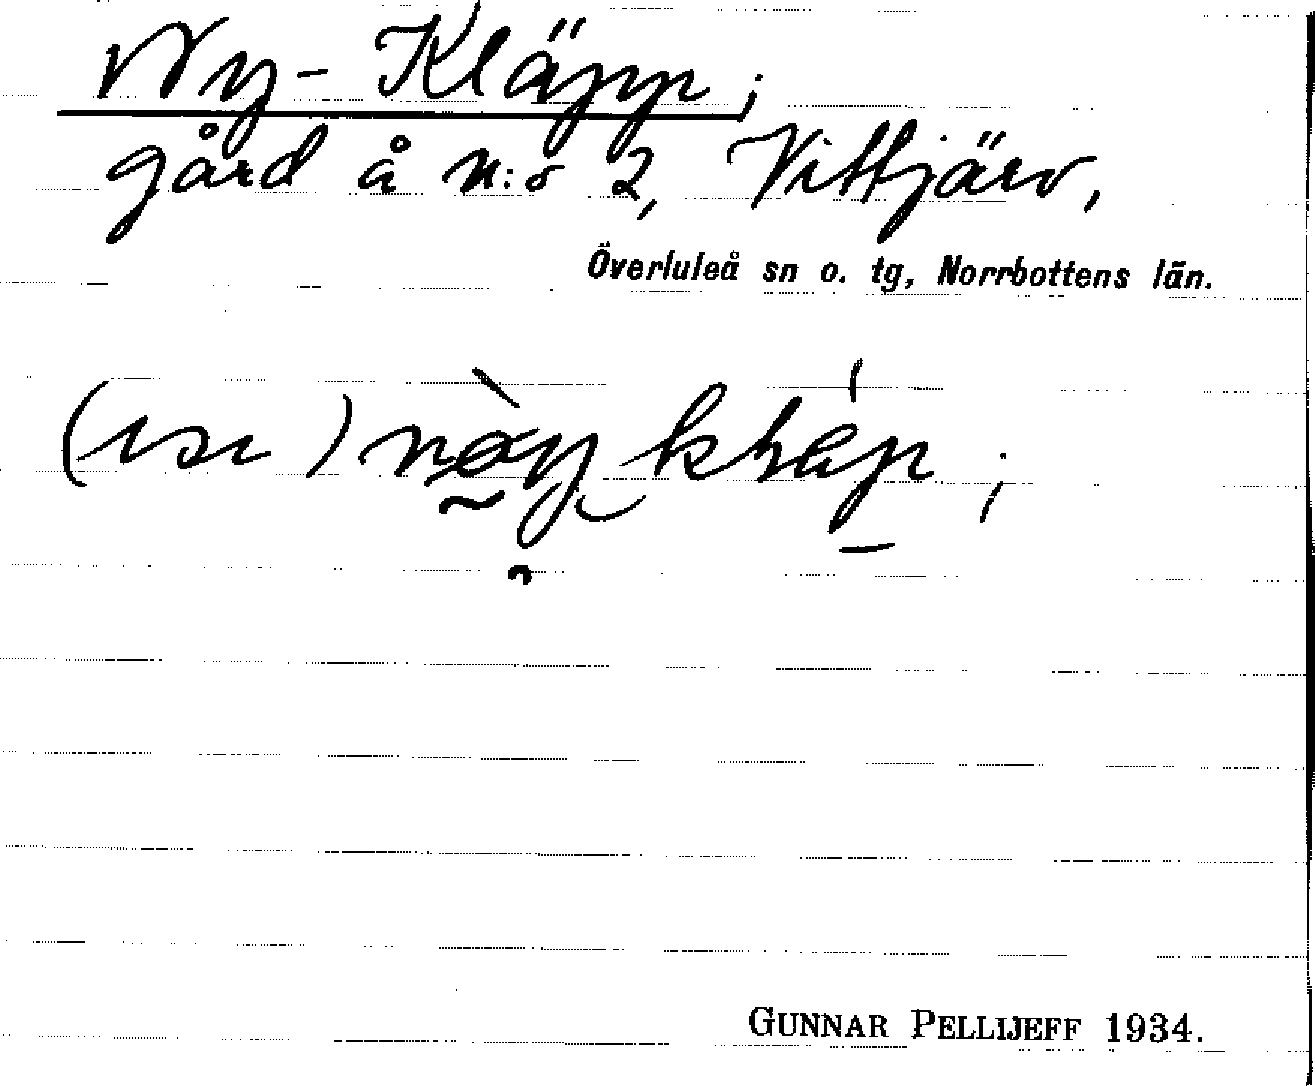 Ny-Kläpp;
gård å N:o 2, Vittjärv,
Överluleå sn o. tg, Norrbottens län.
GUNNAR PELLIJEFF 1934.